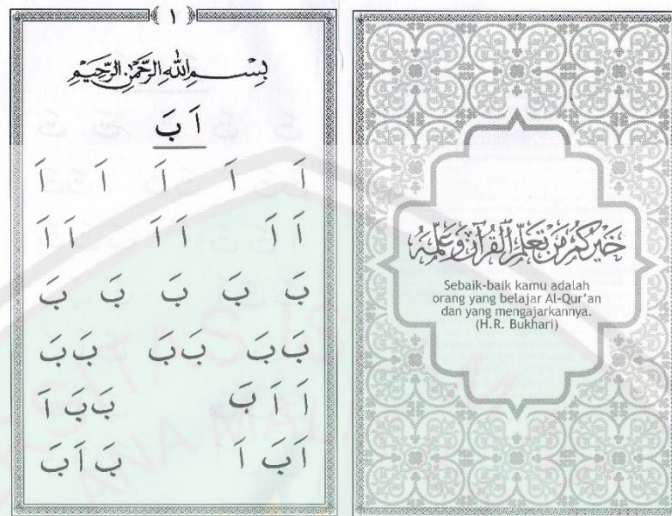 ١
بِسْمِ اللهِ الرَّحْمٰنِ الرَّحِيْمِ
اَ بَ
اَ اَ اَ اَ اَ
اَ اَ اَ اَ اَ اَ
بَ بَ بَ بَ بَ
بَ بَ بَ بَ بَ بَ
اَ اَ بَ بَ بَ اَ
اَ بَ اَ بَ اَ بَ
خَيْرُكُمْ مَنْ تَعَلَّمَ الْقُرْآنَ وَعَلَّمَهُ
Sebaik-baik kamu adalah
orang yang belajar Al-Qur'an
dan yang mengajarkannya.
(H.R. Bukhari)